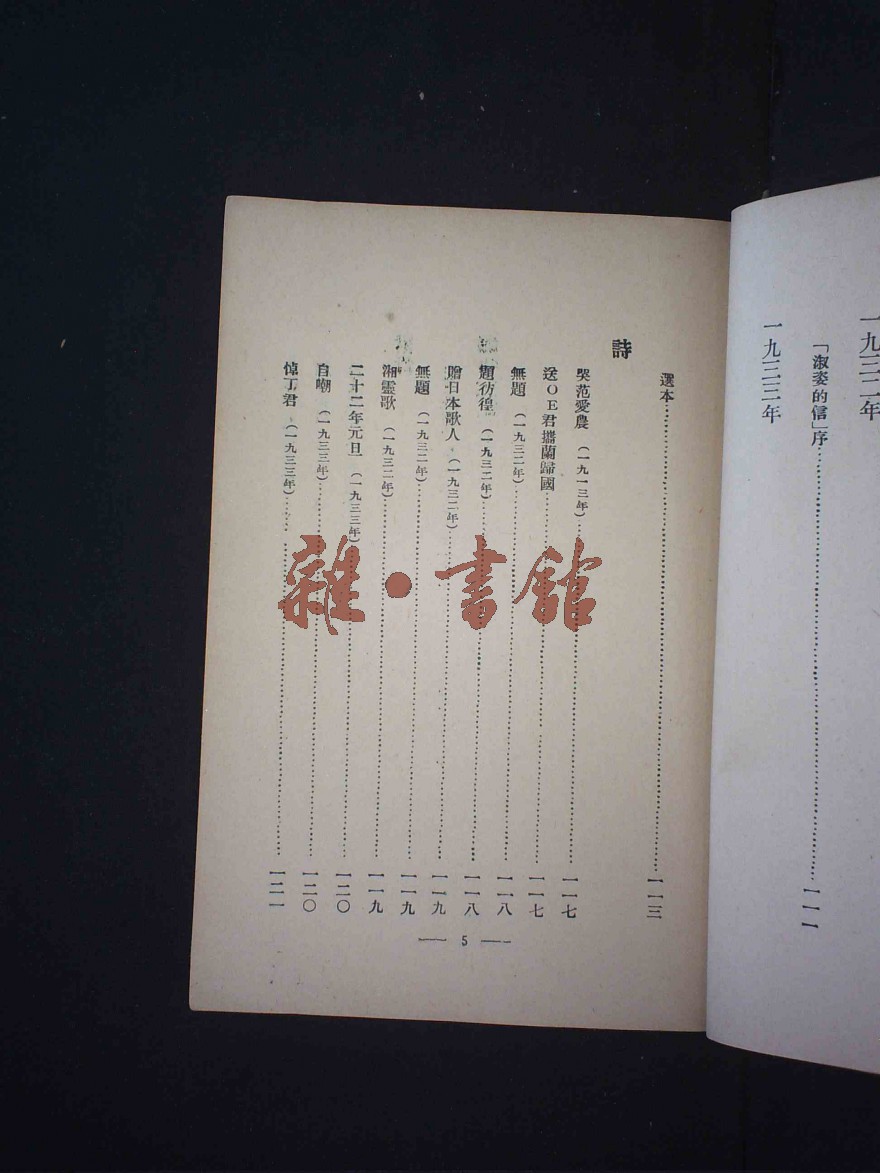 一九三二年
「淑姿的信」序……一一一
一九三三年
選本……一一三
詩
哭范愛農（一九一三年）……一一七
送OE君攜蘭歸國……一一七
無題（一九三二年）……一一八
題彷徨（一九三二年）……一一八
贈日本歌人（一九三二年）……一一九
無題（一九三二年）……一一九
湘靈歌（一九三二年）……一一九
二十二年元旦（一九三三年）……一二〇
自嘲（一九三三年）……一二〇
悼丁君（一九三三年）……一二一
— 5 —
雜·書館